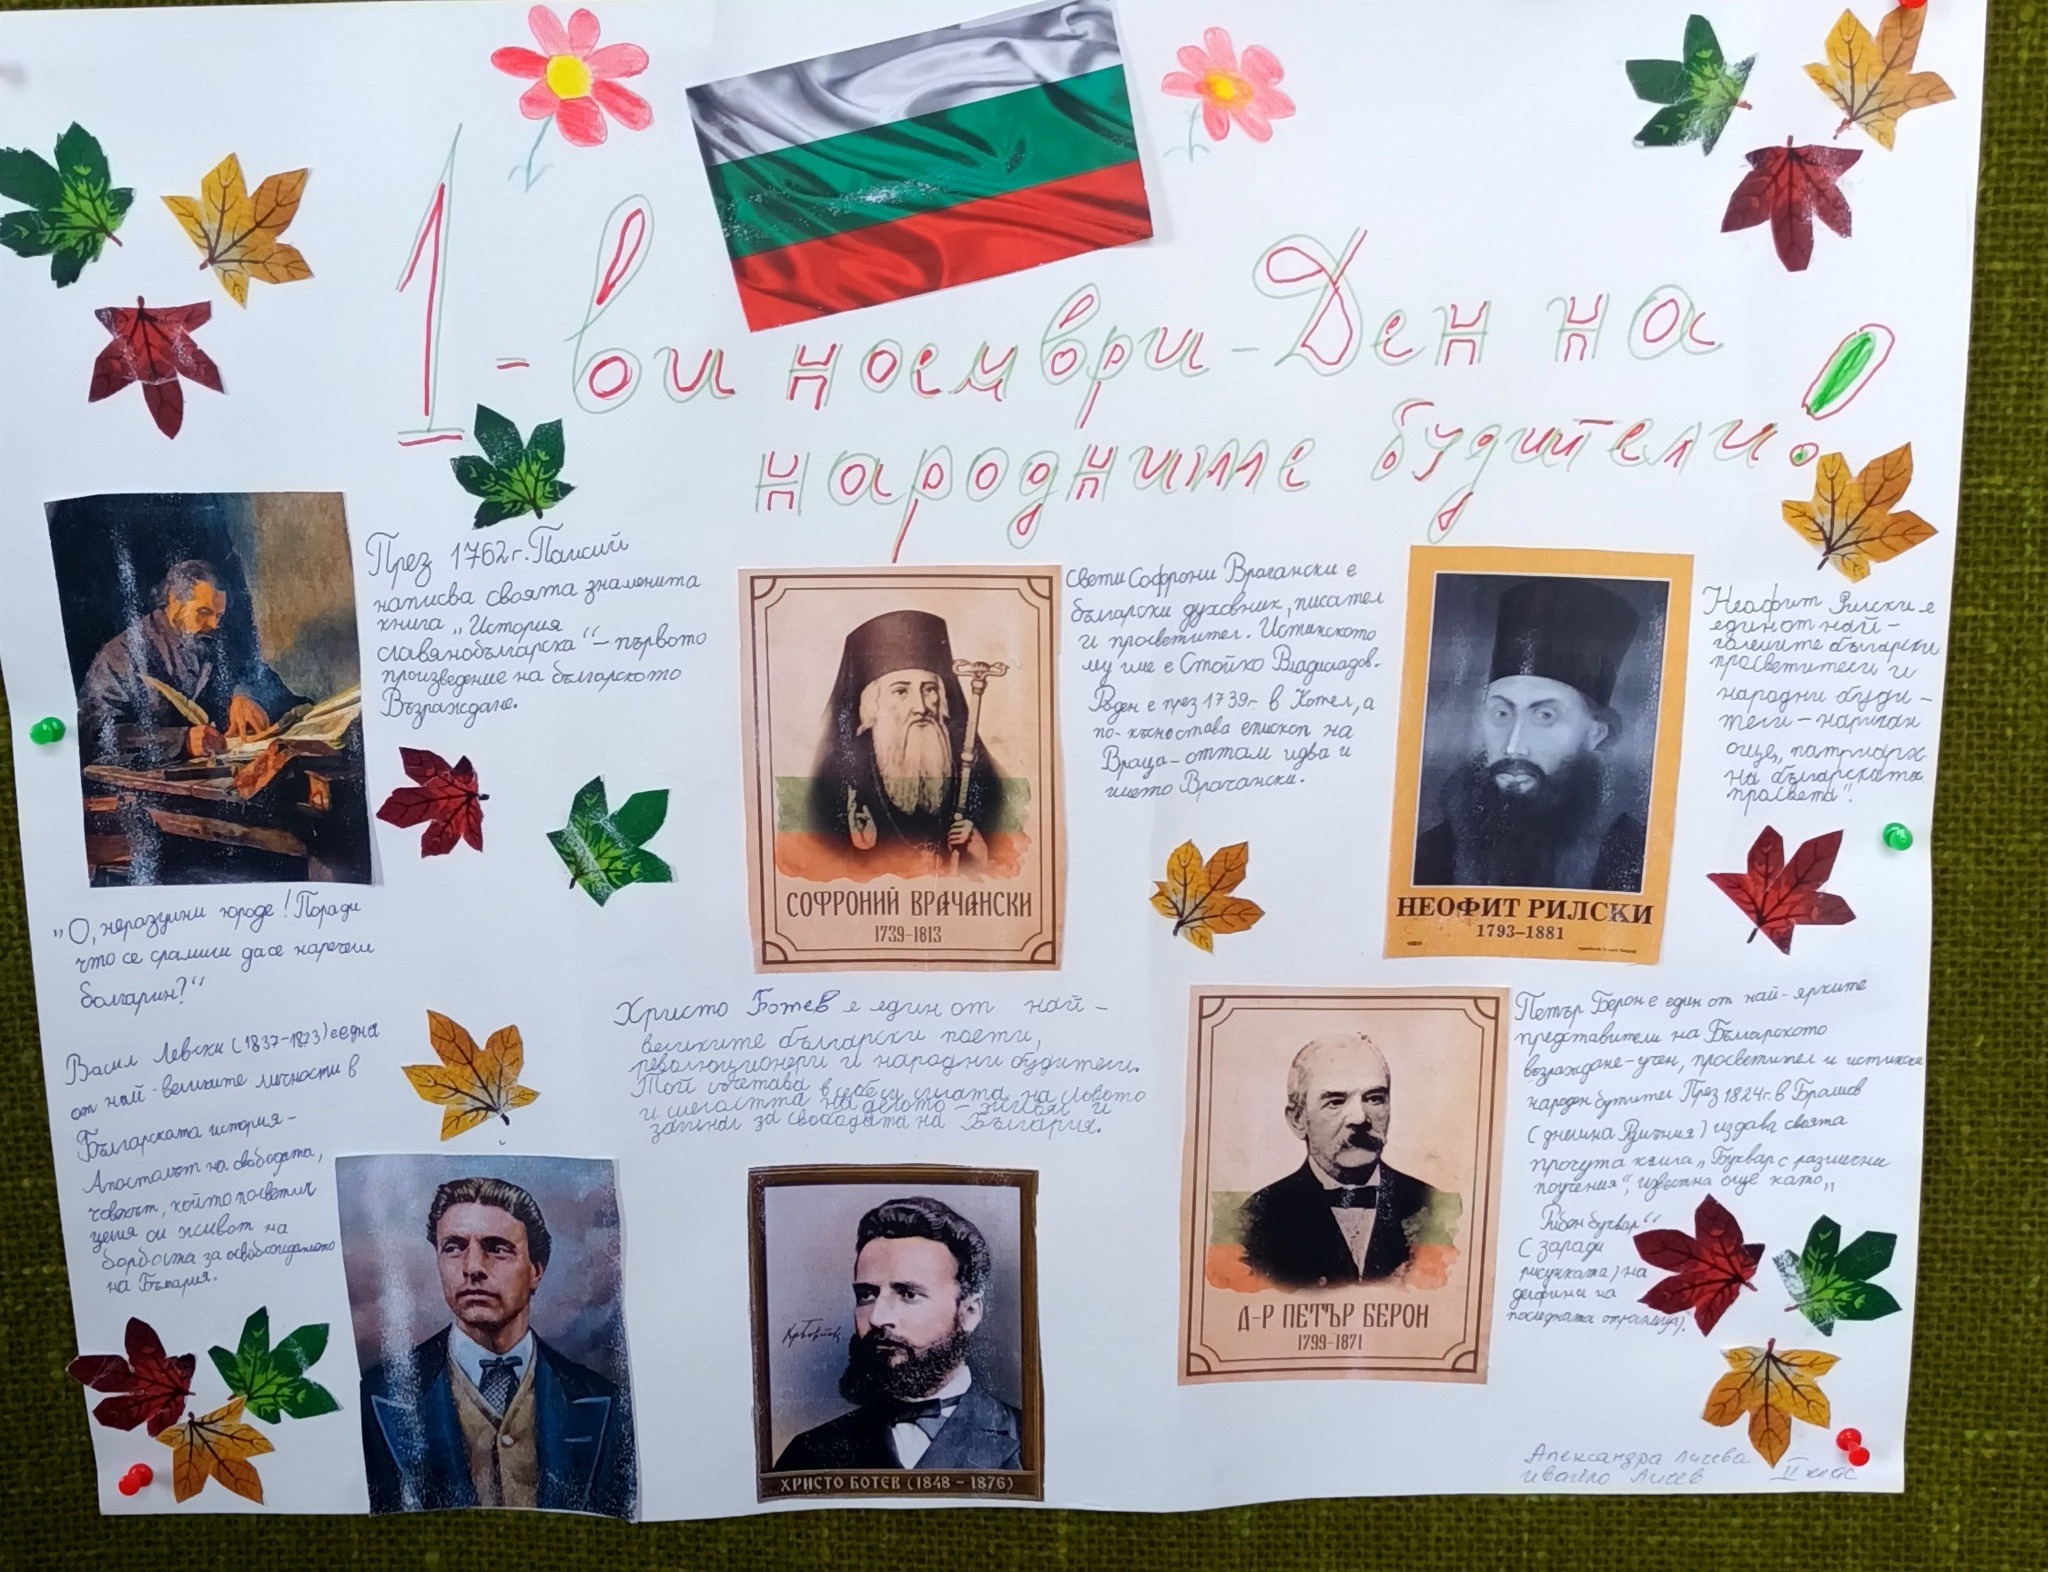 1-ви ноември - Ден на
народните будители!
През 1762г. Паисий
написва своята знаменита
книга „История
славянобългарска“ - първото
произведение на българското
Възраждане.
"О, неразумни юроде! Поради
что се срамиш да се наречеш
болгарин?"
Васил Левски (1837-1873) е една
от най-великите личности в
Българската история -
Апостолът на свободата,
човекът, който посветил
целия си живот на
борбата за освобождението
на България.
Свети Софрони Врачански е
български духовник, писател
и просветител. Истинското
му име е Стойко Владиславов.
Роден е през 1739г. в Котел, а
по-късно става епископ на
Враца - оттам идва и
името Врачански.
СОФРОНИЙ ВРАЧАНСКИ
1739-1813
Неофит Рилски е
един от най-
големите български
просветители и
народни буди-
тели - наричан
още „патриарх
на българската
просвета“.
НЕОФИТ РИЛСКИ
1793-1881
Христо Ботев е един от най-
великите български поети,
революционери и народни будители.
Той съчетава в себе си силата на словото
и смелостта на делото -
загинал за свободата на България.
Хр Ботйовъ
ХРИСТО БОТЕВ (1848 - 1876)
Петър Берон е един от най-ярките
представители на Българското
възраждане - учен, просветител и истински
народен бутител През 1824г. в Брашов
(днешна Румъния) издава своята
прочута книга „Буквар с различни
поучения“, известна още като „
Рибен буквар“
(заради
рисунката) на
делфини на
последната страница).
Д-Р ПЕТЪР БЕРОН
1799-1871
Александра Личева
Ивайло Личев II клас